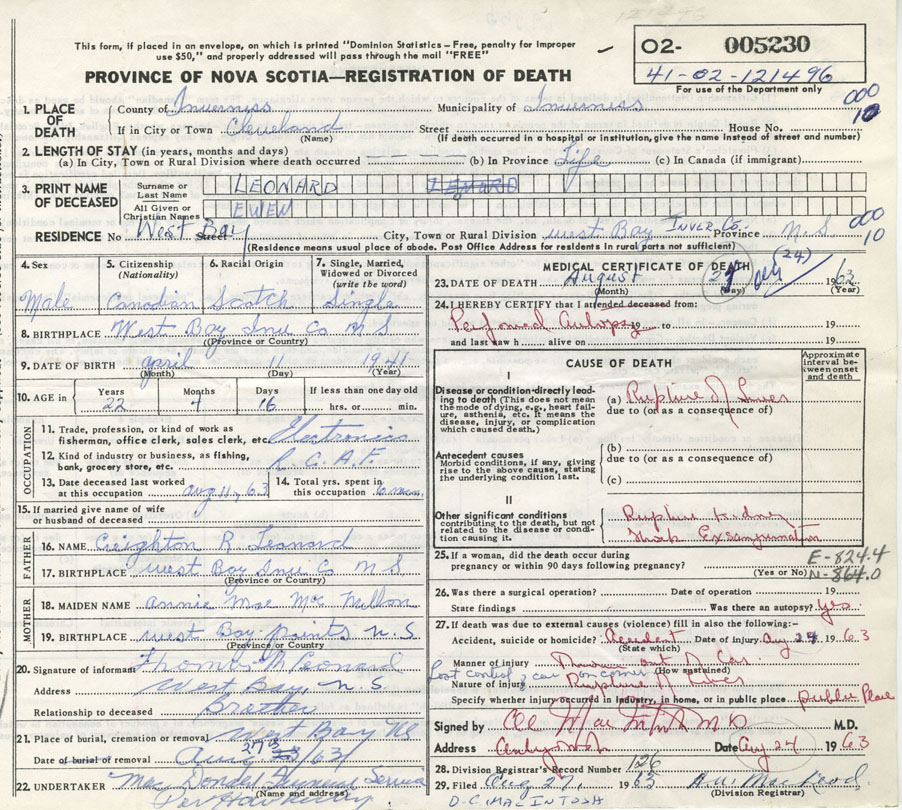 This form, if placed in an envelope, on which is printed "Dominion Statistics – Free, penalty for improper
use $50," and properly addressed will pass through the mail "FREE"
O2- 005230
41-02-121496
For use of the Department only
PROVINCE OF NOVA SCOTIA—REGISTRATION OF DEATH
000
10
1. PLACE OF DEATH
County of Inverness Municipality of Inverness
If in City or Town Cleveland Street House No.
(Name) (If death occurred in a hospital or institution, give the name instead of street and number)
2. LENGTH OF STAY (in years, months and days)
(a) In City, Town or Rural Division where death occurred — — — — (b) In Province Life (c) In Canada (if immigrant)
3. PRINT NAME OF DECEASED
Surname or Last Name LEONARD
All Given or Christian Names EWEN
RESIDENCE No West Bay Street City, Town or Rural Division West Bay INVER Co. Province N.S
000
10
(Residence means usual place of abode. Post Office Address for residents in rural parts not sufficient)
4. Sex
Male
5. Citizenship (Nationality)
Canadian
6. Racial Origin
Scotch
7. Single, Married, Widowed or Divorced (write the word)
Single
8. BIRTHPLACE West Bay Inv Co N S
(Province or Country)
9. DATE OF BIRTH April 11 1941
(Month) (Day) (Year)
10. AGE in
Years 22
Months 4
Days 16
If less than one day old
hrs. or min.
OCCUPATION
11. Trade, profession, or kind of work as
fisherman, office clerk, sales clerk, etc. Electronics
12. Kind of industry or business, as fishing,
bank, grocery store, etc. R.C.A.F.
13. Date deceased last worked
at this occupation Aug 11, 63
14. Total yrs. spent in
this occupation 6 mons.
15. If married give name of wife
or husband of deceased
FATHER
16. NAME Creighton R Leonard
17. BIRTHPLACE West Bay Inv Co N S
(Province or Country)
MOTHER
18. MAIDEN NAME Annie Mae Mc Millan
19. BIRTHPLACE West Bay points N.S
(Province or Country)
20. Signature of informant Thomas M Leonard
Address West Bay, N.S.
Relationship to deceased Brother
21. Place of burial, cremation or removal West Bay
Date of burial or removal Aug 27 /63
22. UNDERTAKER Mac Donald Funeral Service
(Name and address)
MEDICAL CERTIFICATE OF DEATH
(24)
23. DATE OF DEATH August 19
(Month) (Day) (Year)
24. I HEREBY CERTIFY that I attended deceased from:
Performed Autopsy 19 to 19
and last saw h alive on 19
CAUSE OF DEATH
Approximate interval between onset and death
I
Disease or condition directly leading to death (This does not
mean the mode of dying, e.g., heart failure, asthenia, etc. It means the
disease, injury, or complication
which caused death.)
(a) Rupture of Liver
due to (or as a consequence of)
Antecedent causes
Morbid conditions, if any, giving
rise to the above cause, stating
the underlying condition last.
(b)
due to (or as a consequence of)
(c)
II
Other significant conditions
contributing to the death, but not
related to the disease or condition causing it.
Rupture Kidney
Shock Exsanguination
25. If a woman, did the death occur during
pregnancy or within 90 days following pregnancy?
(Yes or No)
E-824.4
N-864.0
26. Was there a surgical operation? Date of operation 19
State findings Was there an autopsy? Yes
27. If death was due to external causes (violence) fill in also the following:-
Accident, suicide or homicide? Accident Date of injury Aug 24 1963
(State which)
Manner of injury Thrown out of Car.
Lost control of car on corner (How sustained)
Nature of injury Rupture of Liver
Specify whether injury occurred in industry, in home, or in public place public Place
Signed by M.D.
Address Date Aug 24 1963
28. Division Registrar's Record Number 126
29. Filed Aug 27, 1963 MacLeod
(Division Registrar)
D.C. MACINTOSH